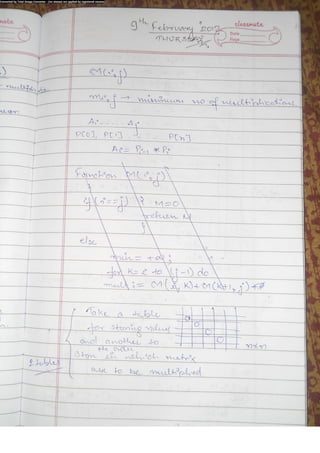 Converted by Total Image Converter
9th February 2017
THURSDAY
classmate
Date
Page
M(i,j)
mi,j → minimum no of multiplications
Ai ...... Aj
P[0], P[1] . . . P[n]
Ai = Pi-1 * Pi
Function M(i,j)
if (i==j) { M=0
return M
}
else
min = +∞;
for k=i to (j-1) do
= M(i,k)+M(k+1,j)+
Take a table
for storing value
and another to
the order
Store in which matrix
are to be multiplied
n×n
2 tables